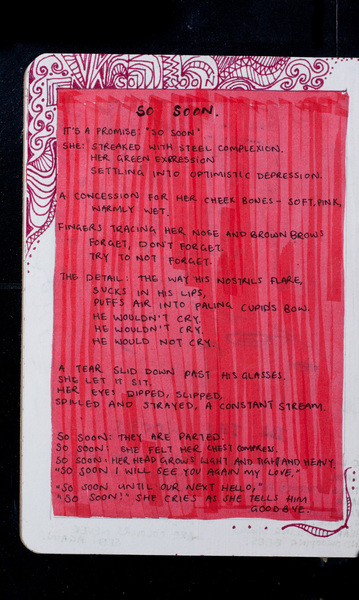 SO SOON.
IT'S A PROMISE: "SO SOON"
SHE: STREAKED WITH STEEL COMPLEXION.
HER GREEN EXPRESSION
SETTLING INTO OPTIMISTIC DEPRESSION.
A CONCESSION FOR HER CHEEK BONES - SOFT, PINK,
WARMLY WET.
FINGERS TRACING HER NOSE AND BROWN BROWS
FORGET, DON'T FORGET.
TRY TO NOT FORGET.
THE DETAIL: THE WAY HIS NOSTRILS FLARE,
SUCKS IN HIS LIPS,
PUFFS AIR INTO PALING CUPID'S BOW.
HE WOULDN'T CRY.
HE WOULDN'T CRY.
HE WOULD NOT CRY.
A TEAR SLID DOWN PAST HIS GLASSES.
SHE LET IT SIT.
HER EYES DIPPED, SLIPPED,
SPILLED AND STRAYED, A CONSTANT STREAM.
SO SOON: THEY ARE PARTED.
SO SOON: SHE FELT HER CHEST COMPRESS.
SO SOON: HER HEAD GROWS LIGHT AND TIGHT AND HEAVY.
"SO SOON I WILL SEE YOU AGAIN MY LOVE."
"SO SOON UNTIL OUR NEXT HELLO,"
"SO SOON!" SHE CRIES AS SHE TELLS HIM
GOODBYE.